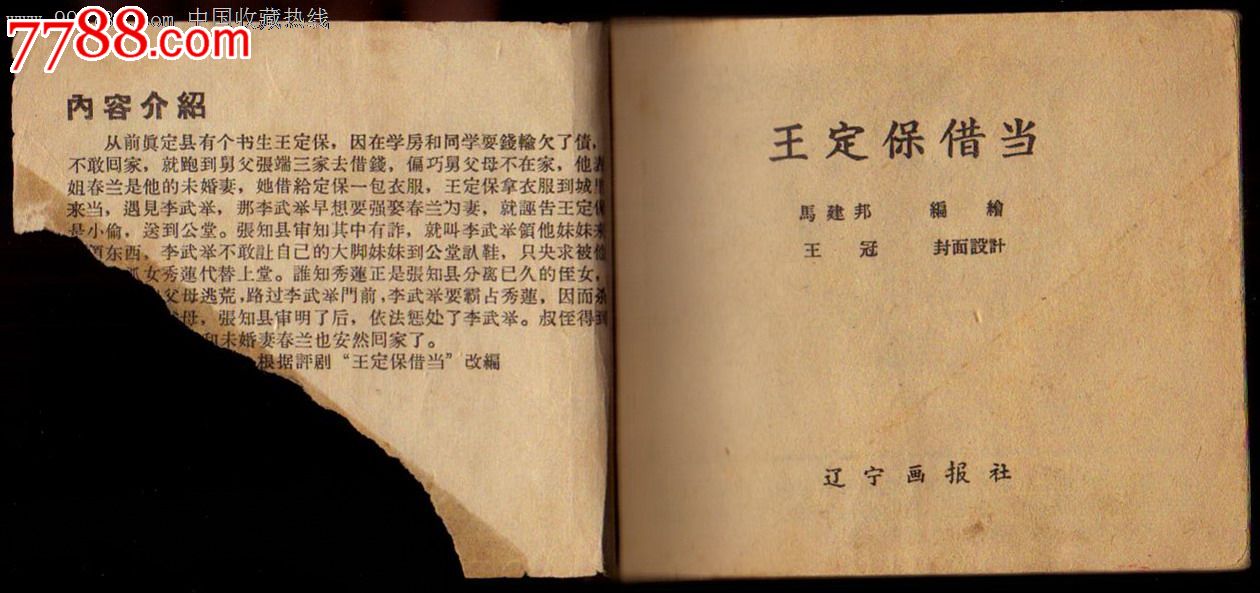 中国收藏热线
7788.com
內容介紹
从前眞定县有个书生王定保，因在学房和同学耍錢輸欠了债，
不敢囘家，就跑到舅父張端三家去借錢，偏巧舅父母不在家，他表
姐春兰是他的未婚妻，她借給定保一包衣服，王定保拿衣服到城里
来当，遇見李武举，那李武举早想要强娶春兰为妻，就誣告王定保
是小偷，送到公堂。張知县审知其中有詐，就叫李武举領他妹妹来
东西，李武举不敢讓自己的大脚妹妹到公堂認鞋，只央求被他
女秀蓮代替上堂。誰知秀蓮正是張知县分离已久的侄女，
父母逃荒，路过李武举門前，李武举要霸占秀蓮，因而杀
母，張知县审明了后，依法惩处了李武举。叔侄得到
和未婚妻春兰也安然囘家了。
根据評剧“王定保借当”改編
王定保借当
馬建邦 編繪
王冠 封面設計
辽宁画报社